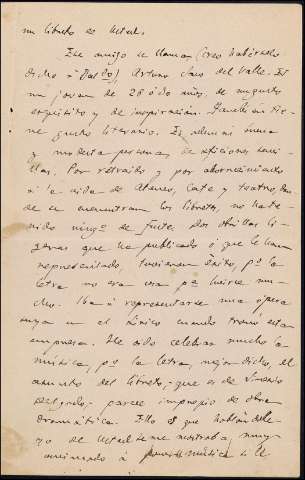 un libreto es Usted.
Ese amigo se llama (creo habérselo
dicho á ) Arturo Saco del Valle. Es
un joven de 28 ó 30 años, de muy gusto
exquisito y de inspiración. También tie-
ne gusto literario. Es además una
y modesta persona, de aficiones senci-
llas. Por retraido y por aborrecimiento
á la vida de Ateneo, Café y teatro, don-
de se encuentran los libretos, no ha te-
nido ningº de fuste. Dos obrillas li-
geras que ha publicado ó que le han
representado, tuvieron éxito, pº la
letra no era cosa pª lucirse mu-
cho. Iba á representarse una ópera
suya en el Lírico cuando tronó esta
empresa. He oido celebrar mucho la
música, pº la letra, mejor dicho, el
asunto del libreto, que es de Sinesio
Delgado, parece impropio de obra
dramática. Ello es que hablándole
yo de Usted se me mostraba muy
animado á poner música á le